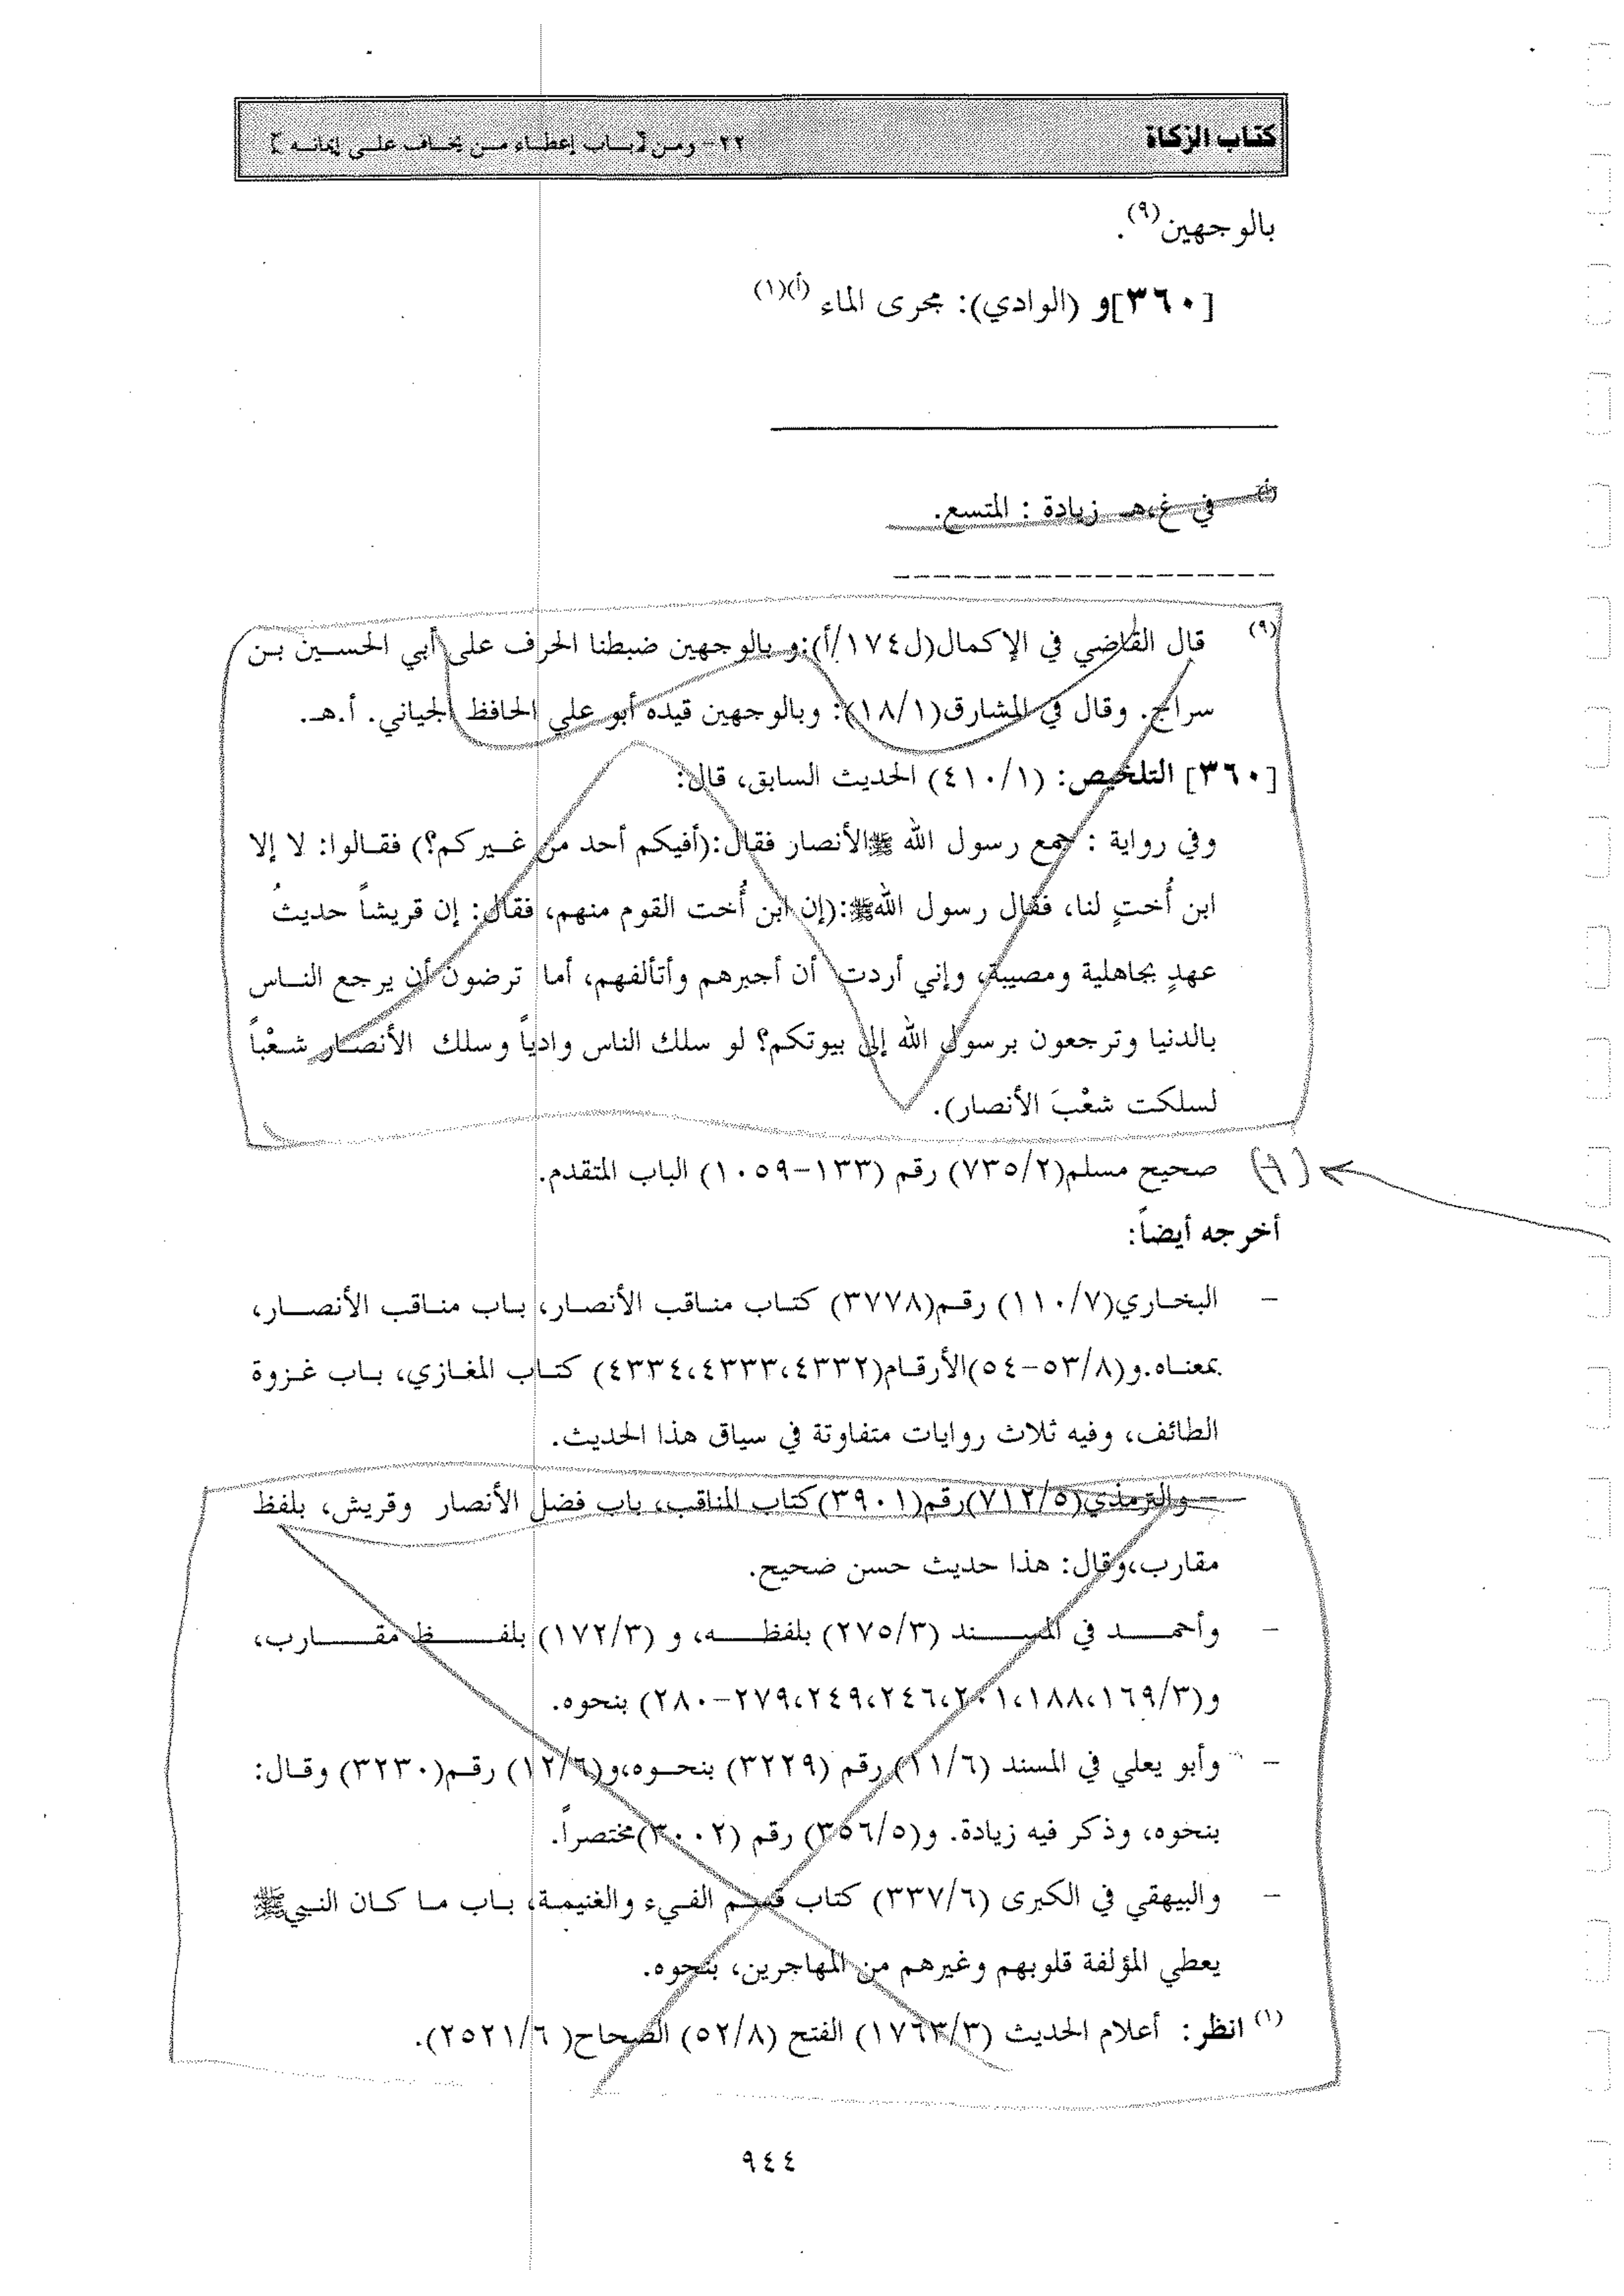 كتاب الزكاة
٢٢- ومن [باب إعطاء من يخاف على إيمانه]
بالوجهين(٩).
[٣٦٠]و (الوادي): مجرى الماء (أ)(١)
(أ) في غ،هـ زيادة : المتسع.
(٩) قال القاضي في الإكمال(ل١٧٤/أ):و بالوجهين ضبطنا الحرف على أبي الحسين بن
سراج. وقال في المشارق(١٨/١): وبالوجهين قيده أبو علي الحافظ الجياني. أ.هـ.
[٣٦٠] التلخيص: (٤١٠/١) الحديث السابق، قال:
وفي رواية : جمع رسول الله ﷺ الأنصار فقال:(أفيكم أحد من غيركم؟) فقالوا: لا إلا
ابن أُختٍ لنا، فقال رسول الله ﷺ:(إن ابن أُخت القوم منهم، فقال: إن قريشاً حديثُ
عهدٍ بجاهلية ومصيبة، وإني أردت أن أجبرهم وأتألفهم، أما ترضون أن يرجع الناس
بالدنيا وترجعون برسول الله إلى بيوتكم؟ لو سلك الناس وادياً وسلك الأنصار شعْباً
لسلكت شعْبَ الأنصار).
(٩) صحيح مسلم(٧٣٥/٢) رقم (١٣٣-١٠٥٩) الباب المتقدم.
أخرجه أيضاً:
- البخاري(١١٠/٧) رقم(٣٧٧٨) كتاب مناقب الأنصار، باب مناقب الأنصار،
بمعناه.و(٥٣/٨-٥٤)الأرقام(٤٣٣٤،٤٣٣٣،٤٣٣٢) كتاب المغازي، باب غزوة
الطائف، وفيه ثلاث روايات متفاوتة في سياق هذا الحديث.
- والترمذي(٧١٢/٥)رقم(٣٩٠١)كتاب المناقب، باب فضل الأنصار وقريش، بلفظ
مقارب،وقال: هذا حديث حسن صحيح.
- وأحمد في المسند (٢٧٥/٣) بلفظه، و (١٧٢/٣) بلفظ مقارب،
و(١٦٩/٣،١٨٨،٢٠١،٢٤٦،٢٤٩،٢٧٩-٢٨٠) بنحوه.
- وأبو يعلي في المسند (١١/٦) رقم (٣٢٢٩) بنحوه،و(١٢/٦) رقم(٣٢٣٠) وقال:
بنحوه، وذكر فيه زيادة. و(٣٥٦/٥) رقم (٣٠٠٢)مختصراً.
- والبيهقي في الكبرى (٣٣٧/٦) كتاب قسم الفيء والغنيمة، باب ما كان النبي ﷺ
يعطي المؤلفة قلوبهم وغيرهم من المهاجرين، بنحوه.
(١) انظر: أعلام الحديث (١٧٦٣/٣) الفتح (٥٢/٨) الصحاح( ٢٥٢١/٦).
٩٤٤